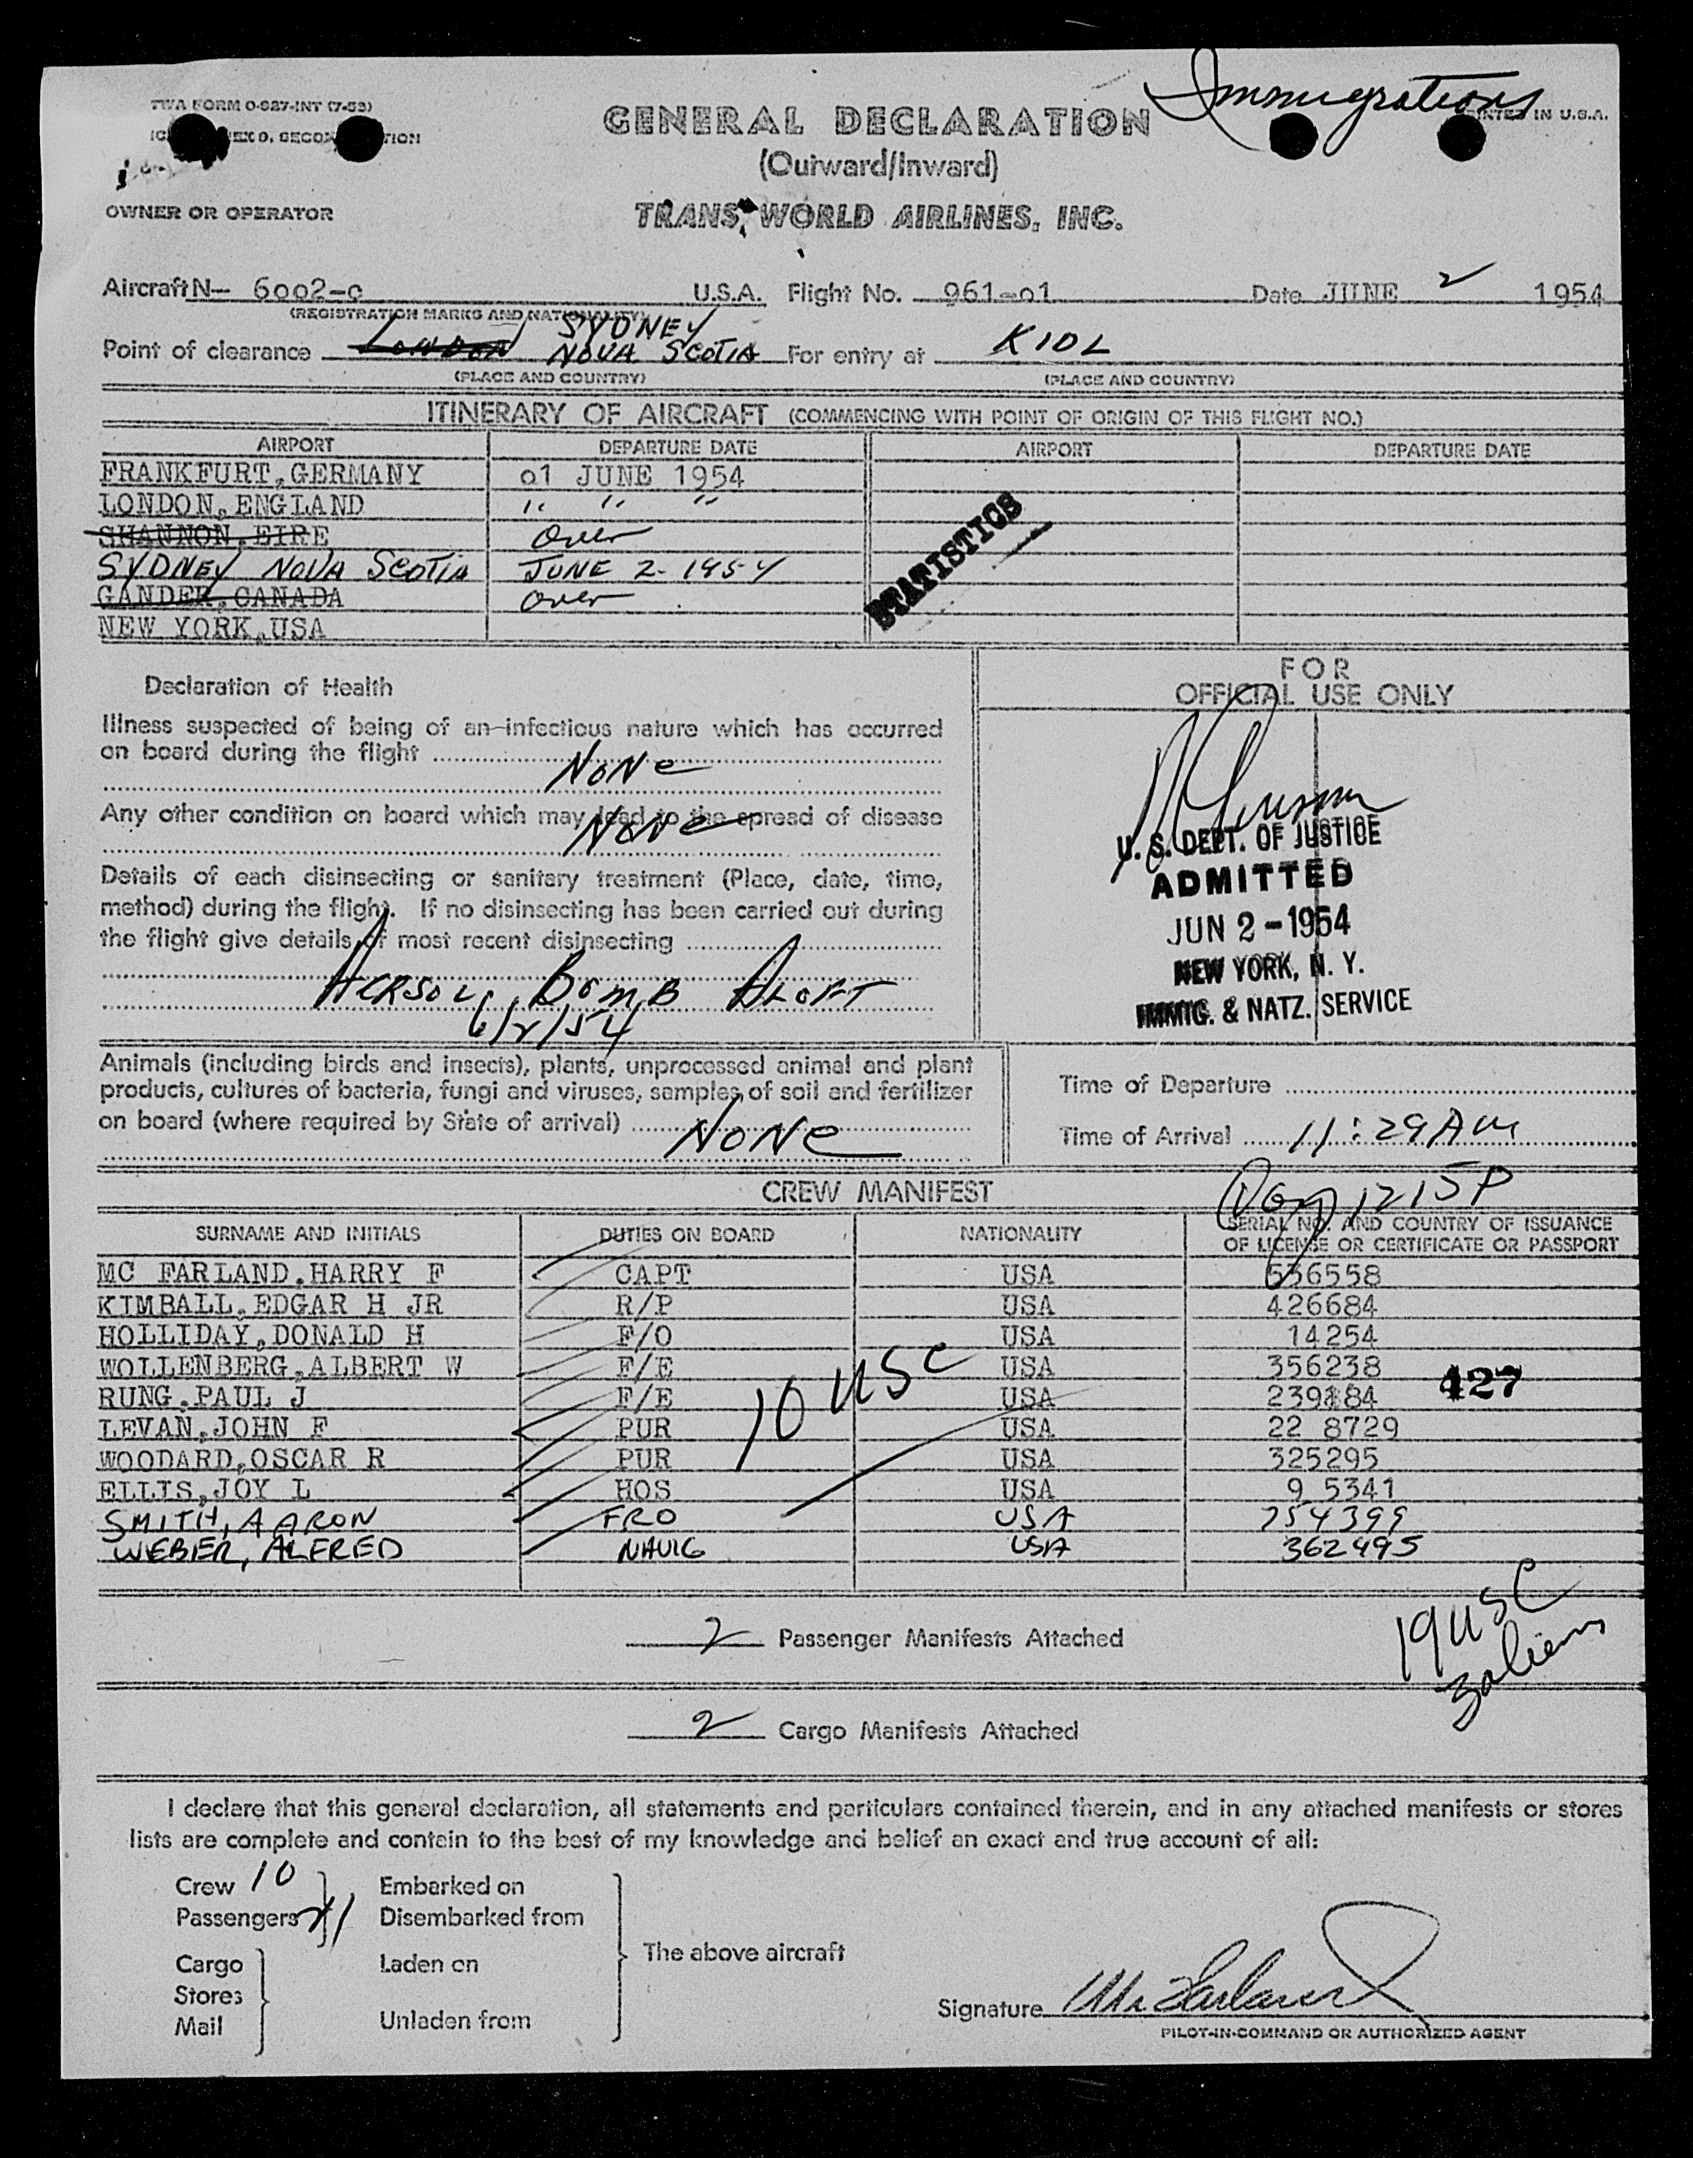 TWA FORM O-927-INT (7-53)
Immigrations
PRINTED IN U.S.A.
GENERAL DECLARATION
(Outward/Inward)
OWNER OR OPERATOR
TRANS WORLD AIRLINES, INC.
Aircraft N- 6002-C U.S.A. Flight No. 961-01 Date JUNE 2 1954
(REGISTRATION MARKS AND NATIONALITY)
Point of clearance LONDON SYDNEY NOVA SCOTIA For entry at KIDL
(PLACE AND COUNTRY) (PLACE AND COUNTRY)
ITINERARY OF AIRCRAFT (COMMENCING WITH POINT OF ORIGIN OF THIS FLIGHT NO.)
AIRPORT DEPARTURE DATE AIRPORT DEPARTURE DATE
FRANKFURT,GERMANY 01 JUNE 1954
LONDON,ENGLAND " " "
SHANNON,EIRE Over
SYDNEY NOVA SCOTIA JUNE 2-1954
GANDER,CANADA Over
NEW YORK,USA
STATISTICS
Declaration of Health
Illness suspected of being of an infectious nature which has occurred
on board during the flight NONE
Any other condition on board which may lead to the spread of disease
NONE
Details of each disinsecting or sanitary treatment (Place, date, time,
method) during the flight. If no disinsecting has been carried out during
the flight give details of most recent disinsecting
AERSOL BOMB ALOFT
6/2/54
FOR
OFFICIAL USE ONLY
U. S. DEPT. OF JUSTICE
ADMITTED
JUN 2 - 1954
NEW YORK, N. Y.
IMMIG. & NATZ. SERVICE
Animals (including birds and insects), plants, unprocessed animal and plant
products, cultures of bacteria, fungi and viruses, samples of soil and fertilizer
on board (where required by State of arrival) NONE
Time of Departure
Time of Arrival 11:29 AM
1215P
CREW MANIFEST
SURNAME AND INITIALS DUTIES ON BOARD NATIONALITY SERIAL NO. AND COUNTRY OF ISSUANCE
OF LICENSE OR CERTIFICATE OR PASSPORT
MC FARLAND,HARRY F CAPT USA 536558
KIMBALL,EDGAR H JR R/P USA 426684
HOLLIDAY,DONALD H F/O USA 14254
WOLLENBERG,ALBERT W F/E USA 356238
RUNG,PAUL J F/E USA 239184
LEVAN,JOHN F PUR USA 22 8729
WOODARD,OSCAR R PUR USA 325295
ELLIS,JOY L HOS USA 9 5341
SMITH, AARON FRO USA 754399
WEBER, ALFRED NAVIG USA 362495
10 USC
427
19 USC
3 aliens
2 Passenger Manifests Attached
2 Cargo Manifests Attached
I declare that this general declaration, all statements and particulars contained therein, and in any attached manifests or stores
lists are complete and contain to the best of my knowledge and belief an exact and true account of all:
Crew 10 Embarked on
Passengers 21 Disembarked from
The above aircraft
Cargo Laden on
Stores
Mail Unladen from
Signature McFarland
PILOT-IN-COMMAND OR AUTHORIZED AGENT